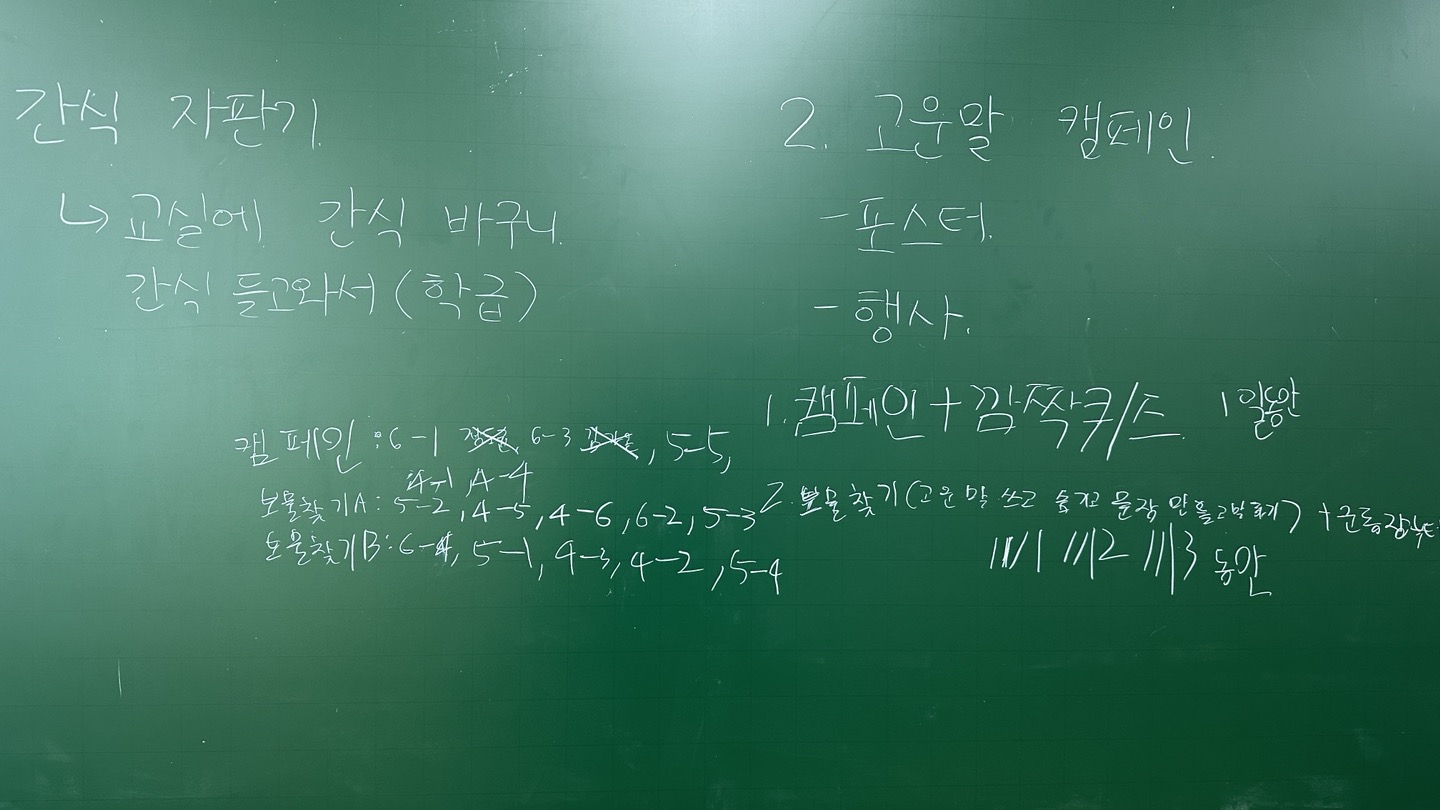 간식 자판기
↳ 교실에 간식 바구니
간식 들고와서 (학급)
캠페인 : 6-1 6-3 , 5-5,
4-1, 4-4
보물찾기A : 5-2, 4-5, 4-6, 6-2, 5-3
보물찾기B : 6-4, 5-1, 4-3, 4-2, 5-4
2. 고운말 캠페인.
- 포스터.
- 행사.
1. 캠페인 + 깜짝퀴즈. 1일동안
2. 보물찾기 (고운 말 쓰고 숨기고 문장
11/1 11/2 11/3 동안